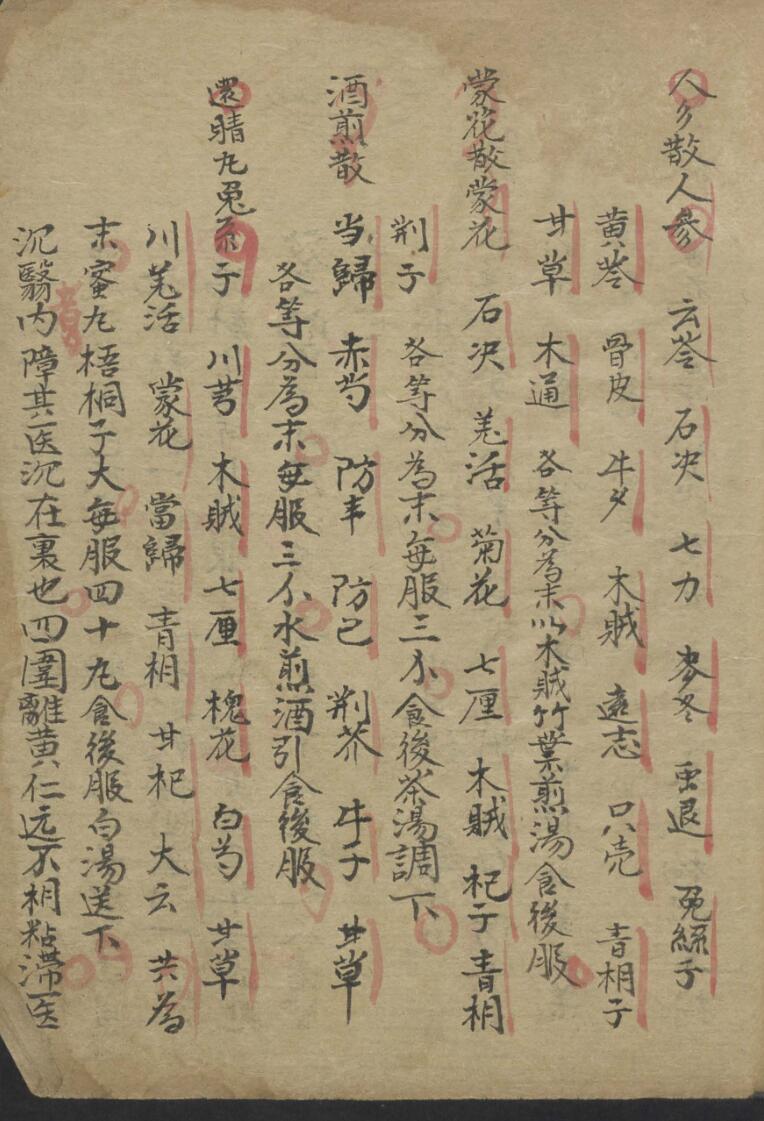 人参散人參 云苓 石决 七力 麥冬 虫退 兔絲子
黄芩 骨皮 牛夕 木賊 遠志 只壳 青相子
甘草 木通 各等分為末以木賊竹葉煎湯食後服
蒙花散蒙花 石决 羌活 菊花 七厘 木賊 杞子青相
荆子 各等分為末每服三分食後茶湯調下
酒煎散 当歸 赤芍 防丰 防已 荆芥 牛子 甘草
各等分為末每服三分水煎酒引食後服
還睛丸兔糸子 川芎 木賊 七厘 槐花 白芍 甘草
川羌活 蒙花 當歸 青相 甘杞 大云 共為
末蜜丸梧桐子大每服四十丸食後服白湯送下
沉翳内障其医沉在裏也四圍離黄仁远不相粘滞医